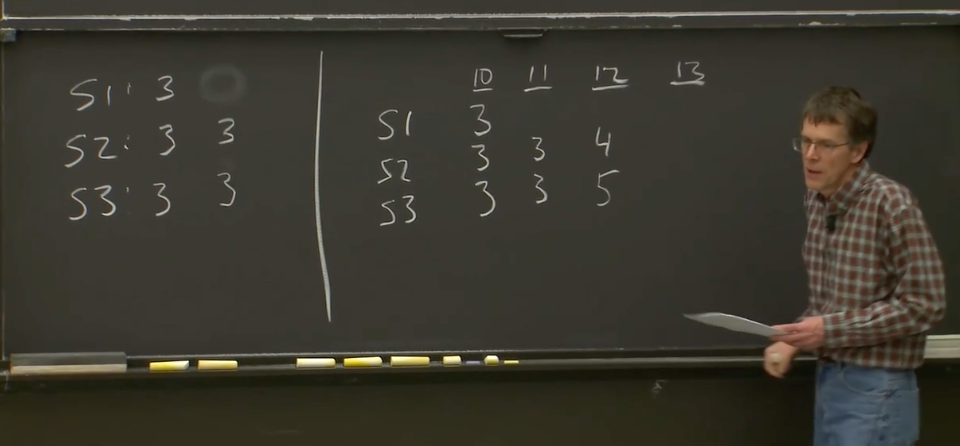 S1: 3
S2: 3 3
S3: 3 3
10 11 12 13
S1 3
S2 3 3 4
S3 3 3 5